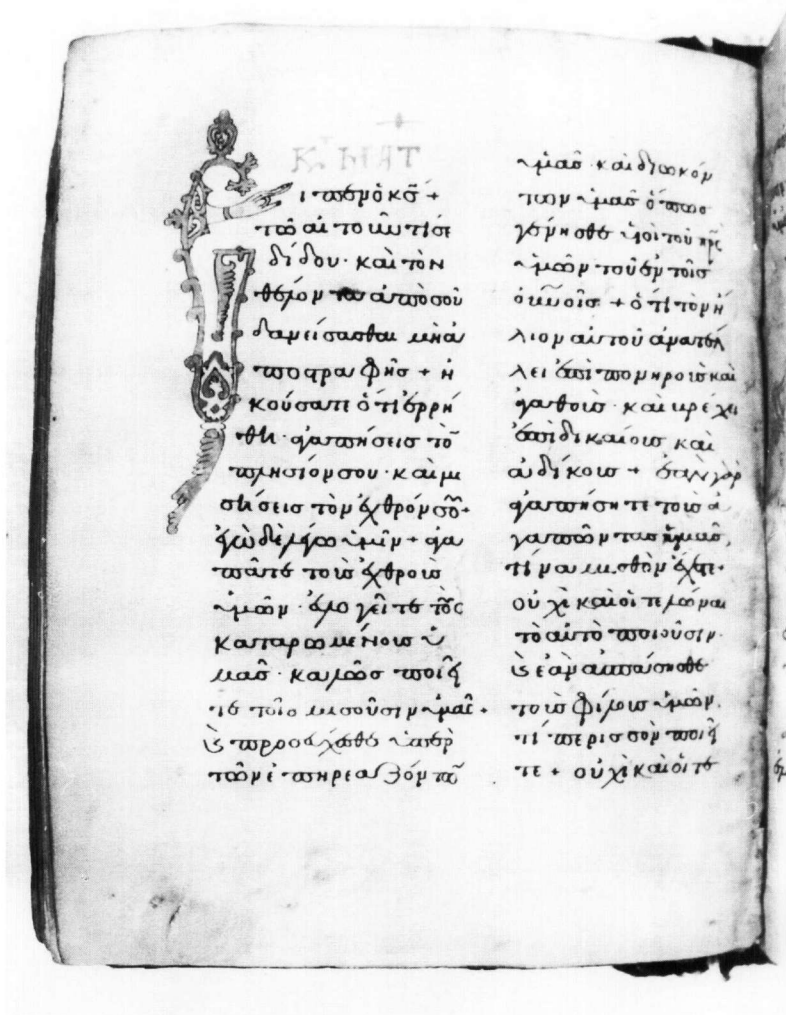 Κ ΜΑΤ
Εἶπεν ὁ κς̅ +
τῶ αἰτοῦντί σε
δίδου · καὶ τὸν
θέλοντα ἀπὸ σοῦ
δανείσασθαι μὴ ἀ
ποστραφῆς + ἠ
κούσατε ὅτι ἐρρή
θη · ἀγαπήσεις τὸ̅
πλησίον σου · καὶ μι
σήσεις τὸν ἐχθρόν σου +
ἐγὼ δὲ λέγω ὑμῖν + ἀγα
πᾶτε τοὺς ἐχθροὺς
ὑμῶν · εὐλογεῖτε τοὺς
καταρωμένους ὑ
μᾶς · καλῶς ποιεῖ
τε τοῖς μισοῦσιν ὑμᾶς +
ϗ προσεύχεσθε ὑπὲρ
τῶν ἐπηρεαζόντω̅
ὑμᾶς · καὶ διωκόν
των ὑμᾶς ὅπως
γένησθε υἱοὶ τοῦ πρ̅ς
ὑμῶν τοῦ ἐν τοῖς
οὐ̅νοῖς + ὅτι τὸν ἥ
λιον αὐτοῦ ἀνατέλ
λει ἐπὶ πονηροὺς καὶ
ἀγαθοὺς · καὶ βρέχει
ἐπὶ δικαίους καὶ
ἀδίκους + ἐὰν γὰρ
ἀγαπήσητε τοὺς ἀ
γαπῶντας ὑμᾶς,
τίνα μισθὸν ἔχετε ·
οὐχὶ καὶ οἱ τελῶναι
τὸ αὐτὸ ποιοῦσιν ·
ϗ ἐὰν ἀσπάσησθε
τοὺς φίλους ὑμῶν,
τί περισσὸν ποιεῖ
τε + οὐχὶ καὶ οἱ τε